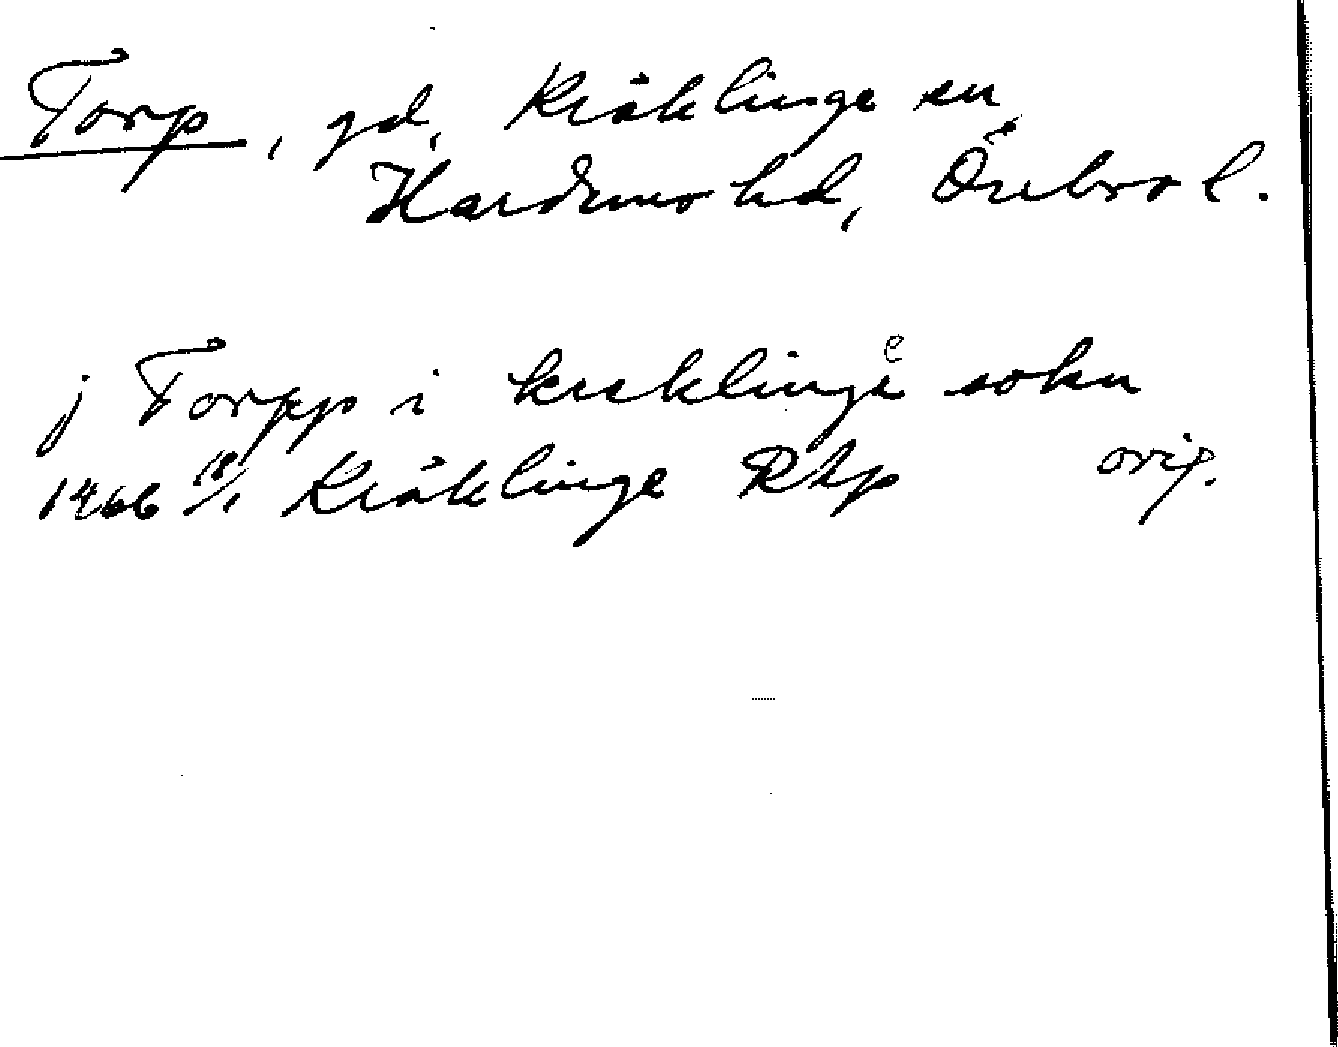 Torp, gd, Kräklinge sn,
Hardemo hd, Örebro l.
j Torpp i kreklinge sokn
1466 18/1 Kräklinge Rtp orig.